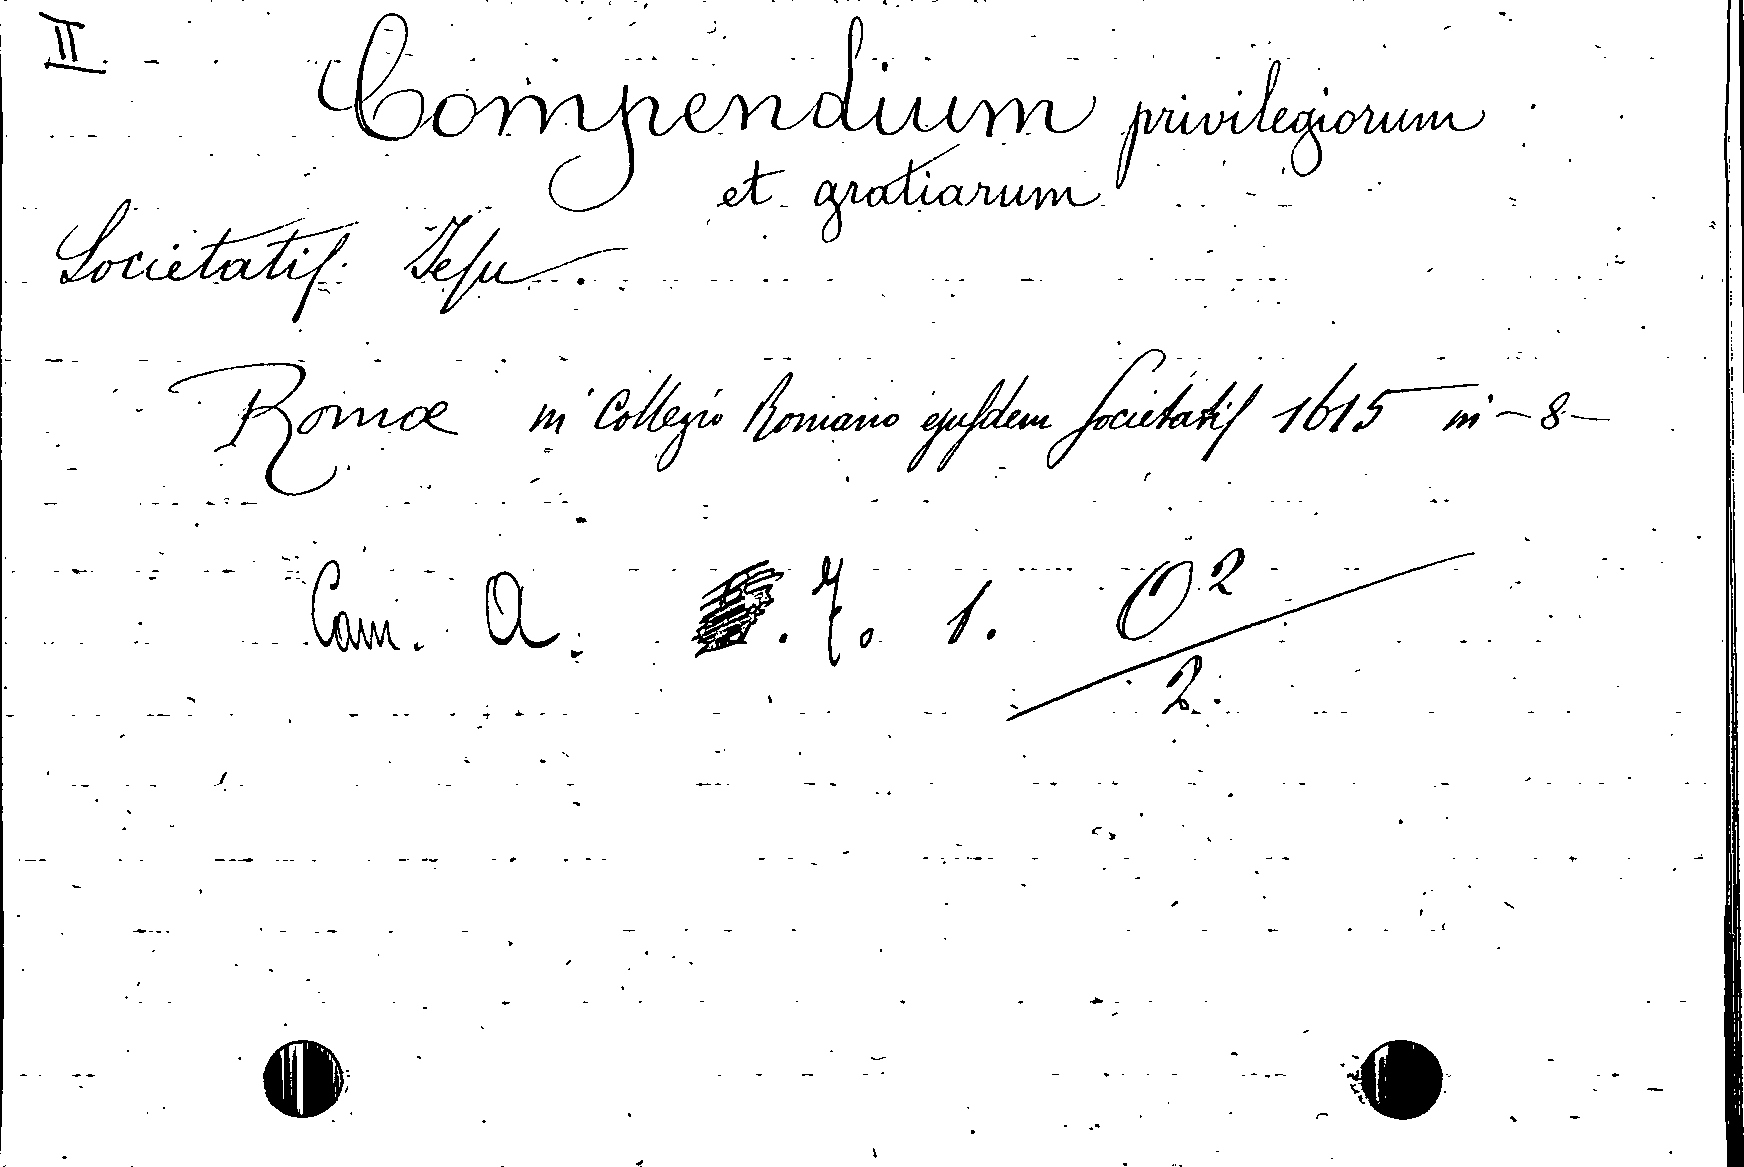 II
Compendium privilegiorum
et gratiarum
Societatiſ Jeſu.
Romæ in Collegio Romano ejuſdem Societatiſ 1615 in-8-
Cam. A. . 7. 1. O²
2.